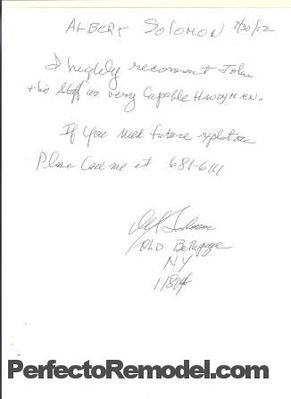 ALBERT SOLOMON 7/30/12
I highly recommend John
+ his staff as very Capable HANDYMEN.
If You need future
Please Call me at 681-614
OLD Bethpage
NY
PerfectoRemodel.com